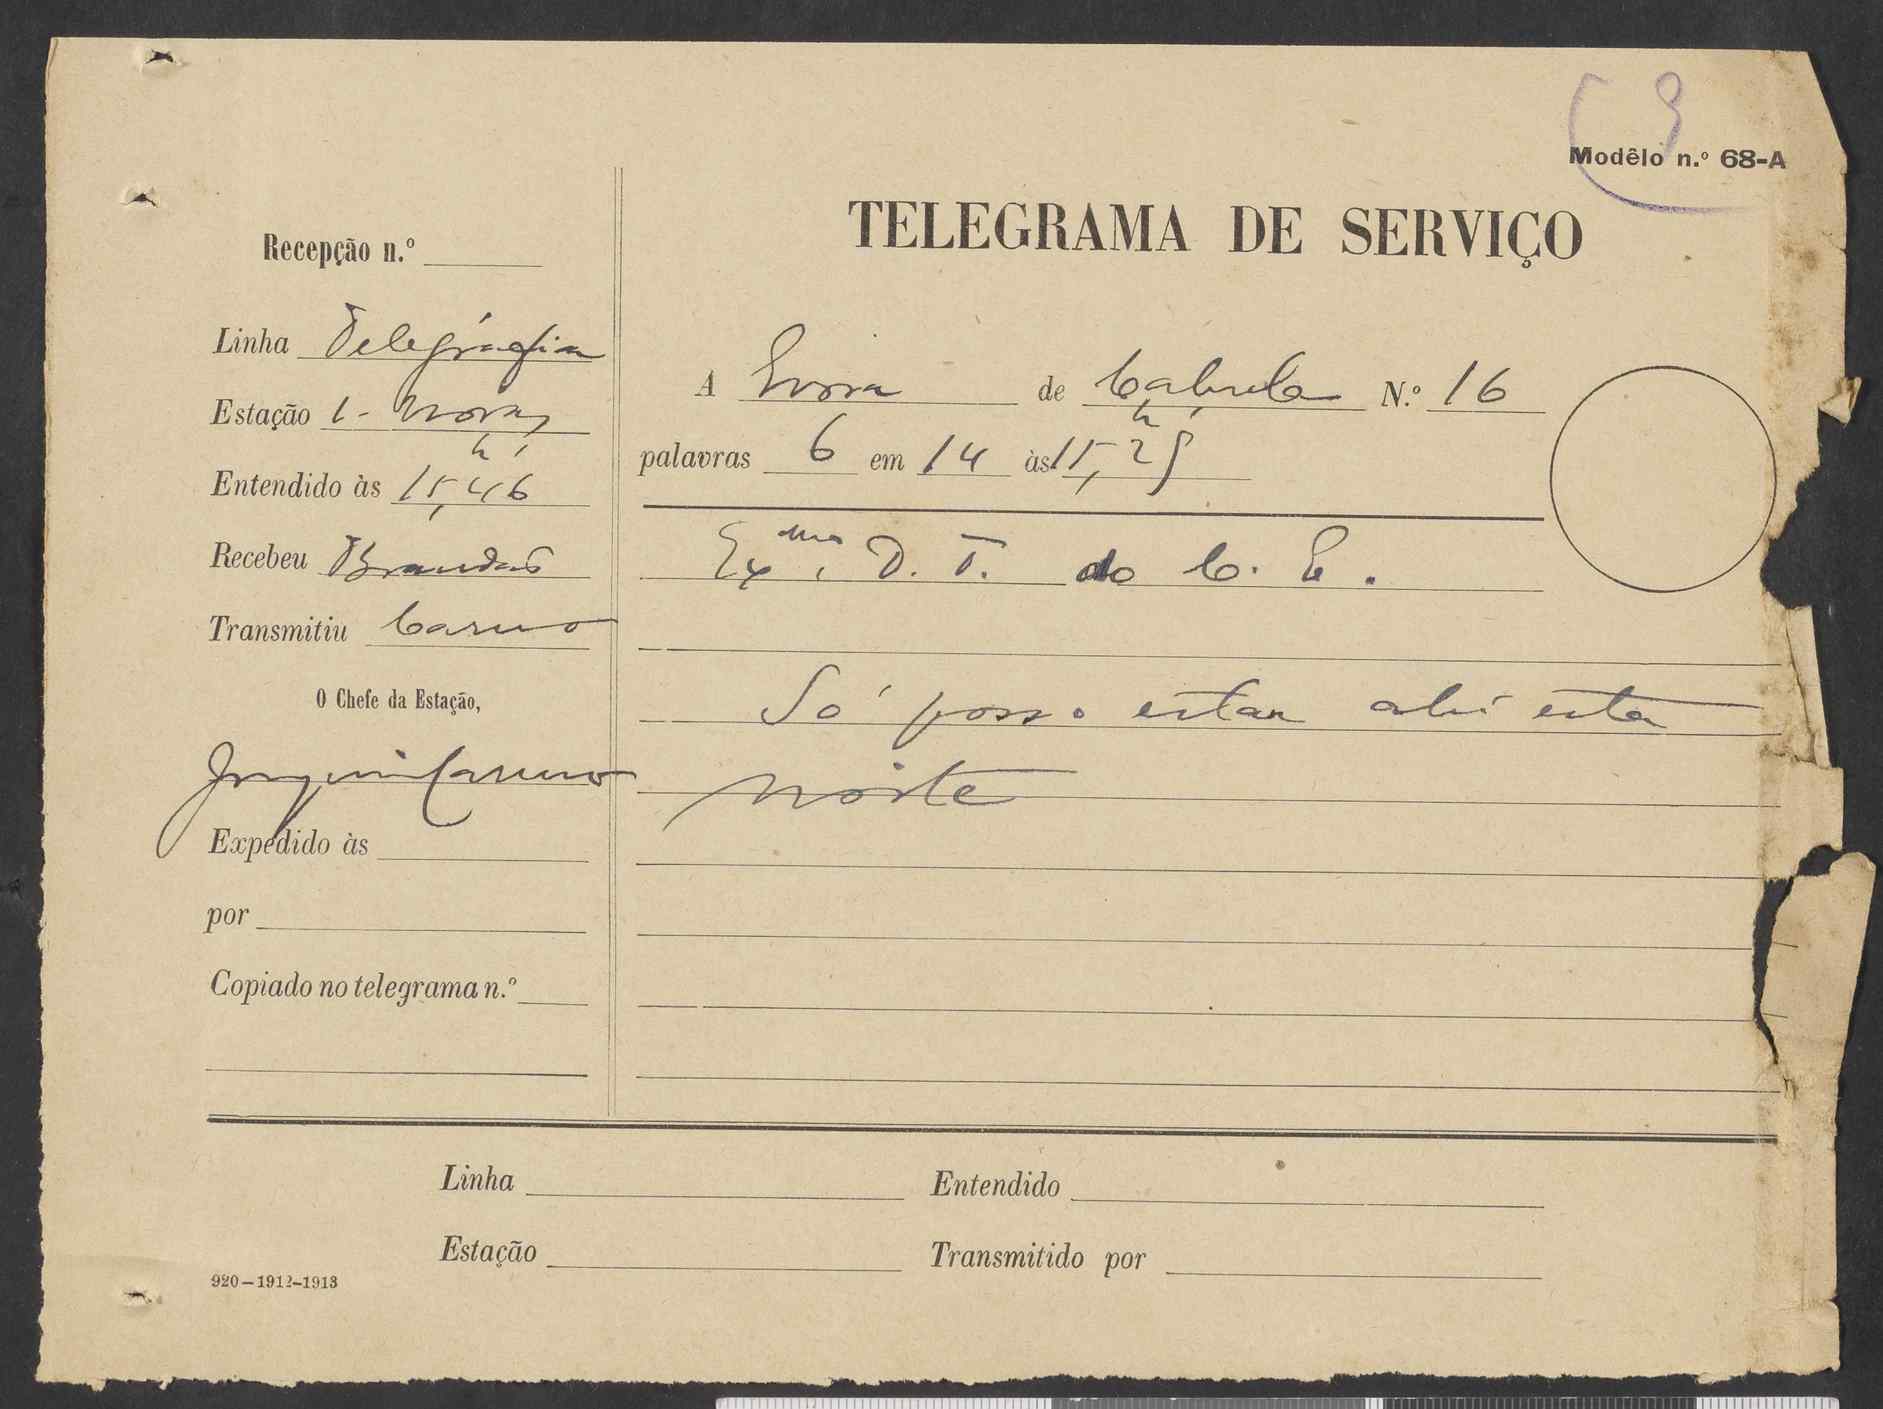 9
Modêlo n.º 68-A
TELEGRAMA DE SERVIÇO
Recepção n.º
Linha Telegrafia
Estação
Entendido às 15,46
Recebeu Brandão
Transmitiu Carmo
O Chefe da Estação,
Joaquim Carmo
Expedido às
por
Copiado no telegrama n.º
A Evora de Cabrela N.º 16
palavras 6 em 14 às 15,25
Exmo. D. T. do C. E.
Só posso estar ahi esta
noite
Linha Entendido
Estação Transmitido por
920–1912–1913